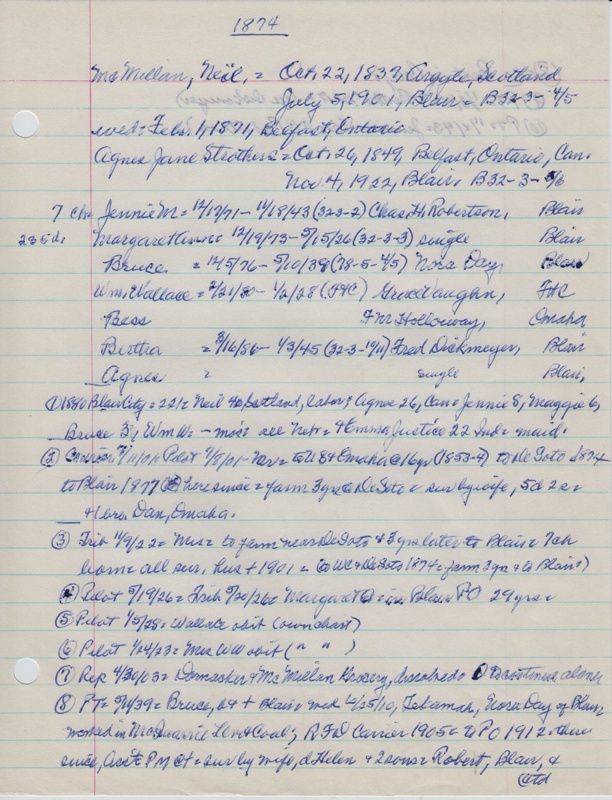 1874
McMillan, Neil, = Oct. 22, 1837, Argyle, Scotland
July 5, 1901, Blair = B32-3-4/5
wed = Feb. 1, 1871, Belfast, Ontario
Agnes Jane Strothers = Oct. 26, 1849, Belfast, Ontario, Can.
Nov. 4, 1922, Blair. B32-3-5/6
7 ch = Jennie M = 12/17/71 - 11/18/43 (32-3-2) Chas. H. Robertson, Blair
2s5d. Margaret Ann = 12/19/73 - 5/15/26 (32-3-3) single Blair
Bruce = 12/5/76 - 5/10/39 (78-5-4/5) Nora Day, Blair
Wm. Wallace = 2/21/80 - 1/2/28 (FHC) Grace Vaughn, FHC
Bess F.M. Holloway, Omaha
Bertha = 3/16/86 - 1/3/45 (32-3-10/11) Fred Dickmeyer, Blair
Agnes = single Blair,
① 1880 Blair City = 221 = Neil 40 Scotland, labor; Agnes 26, Can = Jennie 8, Maggie 6,
Bruce 3; Wm W. - mo's all Nebr = + Emma Justice 22 Ind = maid.
② 7/11/01 Pilot = to US & Omaha @ 16 yr (1853-4) to DeSoto 1874
to Blair 1877 here since = farm 3 yrs @ DeSoto = sur by wife, 5d 2s =
+ 1 bro Dan, Omaha.
③ Trib 11/9/22 = Mrs = to farm near DeSoto & 3 yrs later to Blair = 7ch
born = all sur, hus + 1901 = (to WC & DeSoto 1874 = farm 3 yr & to Blair)
④ Pilot 5/19/26 = Trib 5/20/26 = Margaret in Blair PO 29 yrs =
⑤ Pilot 1/5/28 = Wallace obit (own chart)
⑥ Pilot 1/24/23 = Mrs WW obit ( " " )
⑦ Rep 4/30/03 = & McMillan Grocery, dissolved = D continues alone
⑧ PT = 5/11/39 = Bruce, 64 + Blair = wed 12/25/10, Tekamah, Nora Day of Blair
worked in McQuarrie Lbr & Coal; RFD Carrier 1905 = to PO 1912 = there
since, Asst PM = sur by wife, d Helen + 2 sons = Robert, Blair, &
Ctd